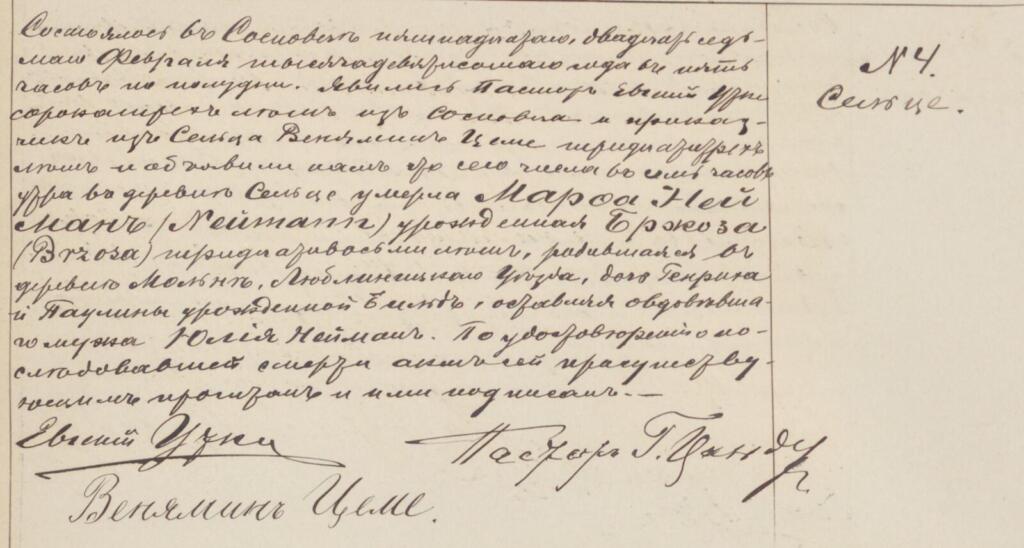 Состоялось въ Сосновецъ пятнадцатаго, двадцать седь-
маго Февраля тысяча девятьсотаго года въ пять
часовъ по полудни. Явились Пасторъ Евгений УTке
сорокатрехъ лѣтъ изъ Сосновца и приказ-
чикъ изъ Сельца Веняминъ Цеме тридцатитрехъ
лѣтъ и объявили намъ что сего числа въ семь часовъ
утра въ деревнѣ Сельце умерла Марѳа Ней
манъ (Neumann) урожденная Бржоза
(Brzoza) тридцативосьми лѣтъ, родившаяся въ
деревнѣ Люблиницкаго Уѣзда, дочь Генриха
и Паулины урожденной оставляя овдовѣвша-
го мужа Юлія Нейманъ. По удостовѣреніи о по-
слѣдовавшей смерти актъ сей присутству-
ющимъ прочтенъ и ими подписанъ.—
Евгений
Пасторъ Г.
Веняминъ Цеме.
N 4.
Сельце.